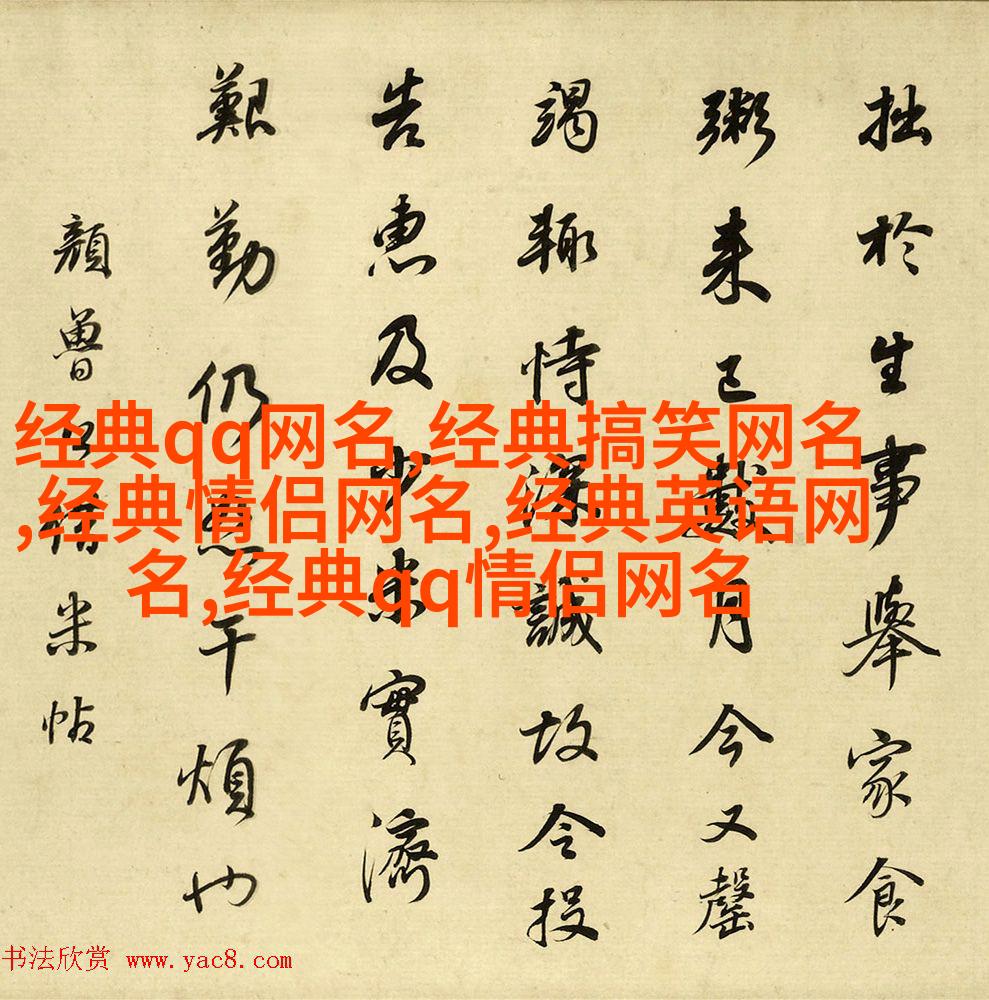 拙於生事舉家食
粥來已數月今又罄
竭輒恃深誠故令投
告惠及少米實濟
艱勤仍恕干煩也
顏魯公借米帖
经典qq网名,经典搞笑网名
,经典情侣网名,经典英语网
名,经典qq情侣网名
书法欣赏 www.yac8.com